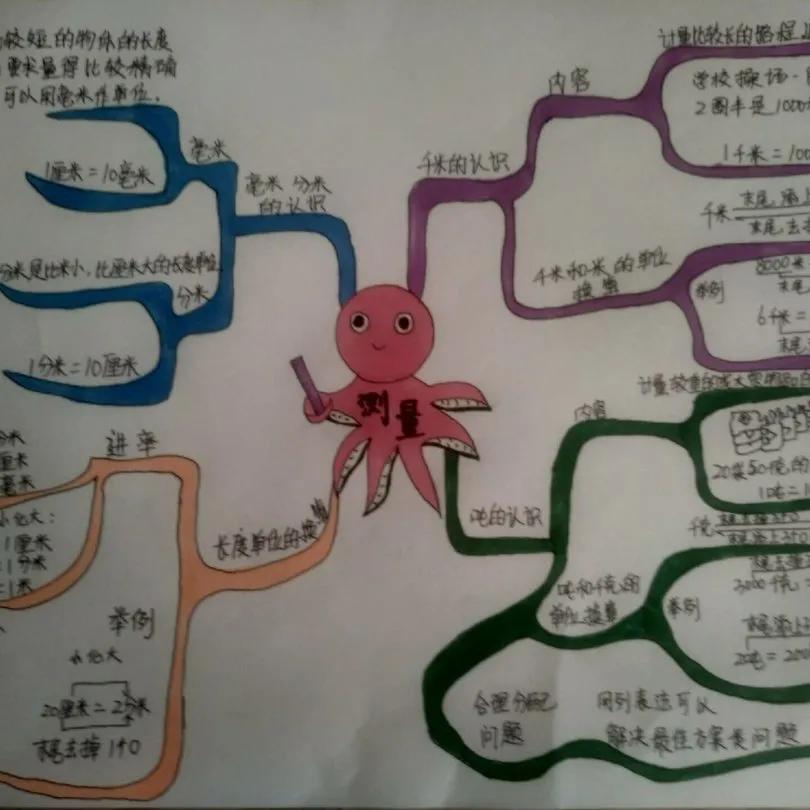 较短的物体的长度
要求量得比较精确
可以用毫米作单位。
毫米
1厘米=10毫米
毫米 分米
的认识
分米是比米小,比厘米大的长度单位
分米
1分米=10厘米
测量
千米的认识
内容
计量比较长的路程
学校操场
2圈半是1000
1千米=100
千米和米的单位
换算
千米
末尾 添上
末尾去掉
举例
8000米
末尾
6千米=
末尾
吨的认识
内容
20袋50千克的
1吨=1
吨和千克的
单位换算
千克
末尾去掉3个0
末尾添上3个0
举例
3000千克
末尾添上3
20吨=2000
合理分配
问题
用列表法可以
解决最佳方案类问题
长度单位的换算
进率
分米
厘米
毫米
小化大:
1厘米
=1分米
=1米
举例
小化大
20厘米=2分米
末尾去掉1个0